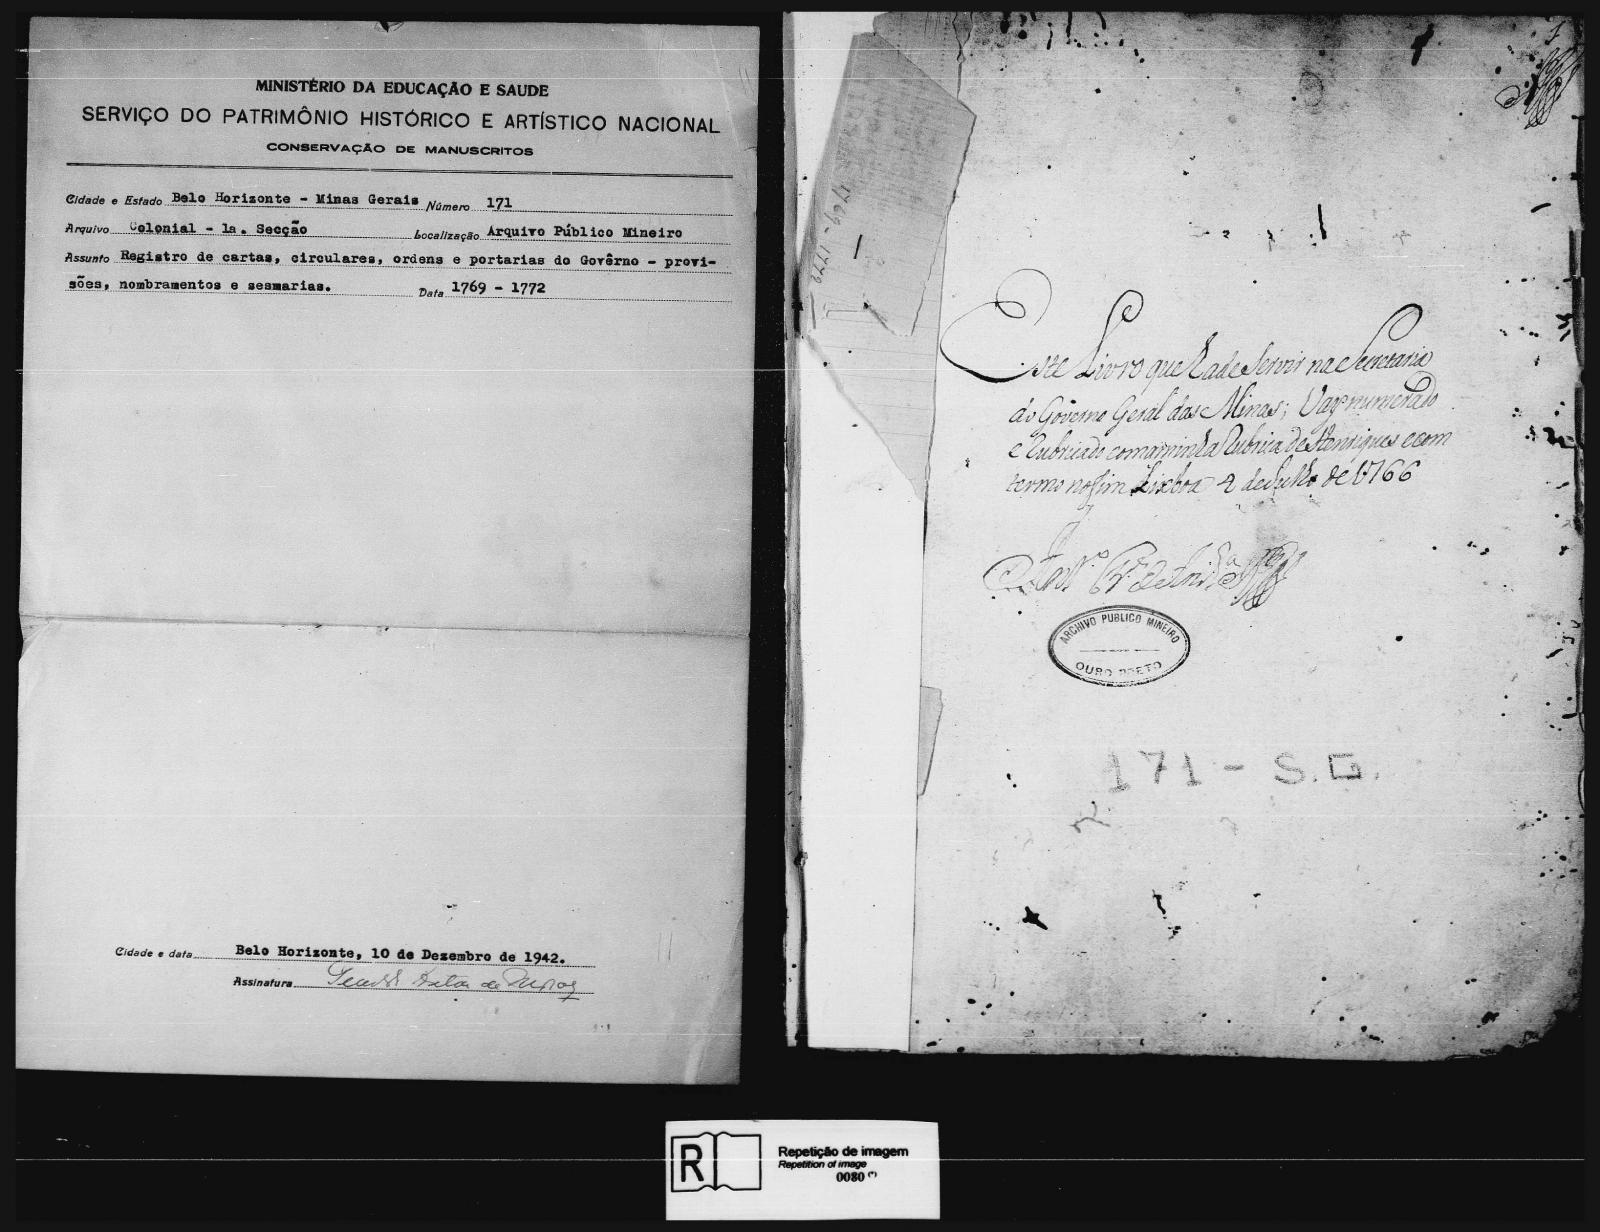 MINISTÉRIO DA EDUCAÇÃO E SAUDE
SERVIÇO DO PATRIMÔNIO HISTÓRICO E ARTÍSTICO NACIONAL
CONSERVAÇÃO DE MANUSCRITOS
Cidade e Estado Belo Horizonte - Minas Gerais Número 171
Arquivo Colonial - 1a. Secção Localização Arquivo Público Mineiro
Assunto Registro de cartas, circulares, ordens e portarias do Govêrno - provi-
sões, nombramentos e sesmarias. Data 1769 - 1772
Cidade e data Belo Horizonte, 10 de Dezembro de 1942.
Assinatura
1
1769-1772
Este Livro que hade Servir na Secretaria
do Governo Geral das Minas; Vay numerado
e Rubricado com a minha Rubrica de Henriques e com
termo no fim Lixboa 2 de Julho de 1766
ARCHIVO PUBLICO MINEIRO
OURO PRETO
171 - S.G.
R
Repetição de imagem
Repetition of image
0080 (*)